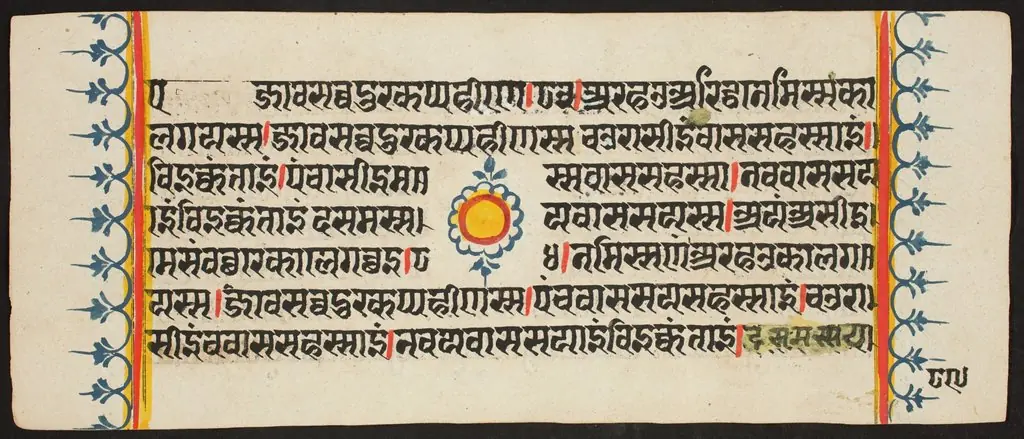 जावसव्वदुरकप्पहीणे।८४।अरहउअरिट्ठनेमिस्सका
लगयस्स।जावसव्वदुरकप्पहीणस्स चउरासीइंवाससहस्साइं।
विइक्कंताइं।पंचासीइमस्सवाससहस्स।नववाससया
इंविइक्कंताइं दसमस्सवाससयस्स।अयंअसीइ
मेसंवच्छरेकालेगच्छइ।८५।नमिस्सणंअरहउकालग
यस्स।जावसव्वदुरकप्पहीणस्स।पंचवाससयसहस्साइं।चउरा
सीइंचवाससहस्साइं।नवयवाससयाइंविइक्कंताइं।दसमस्सय